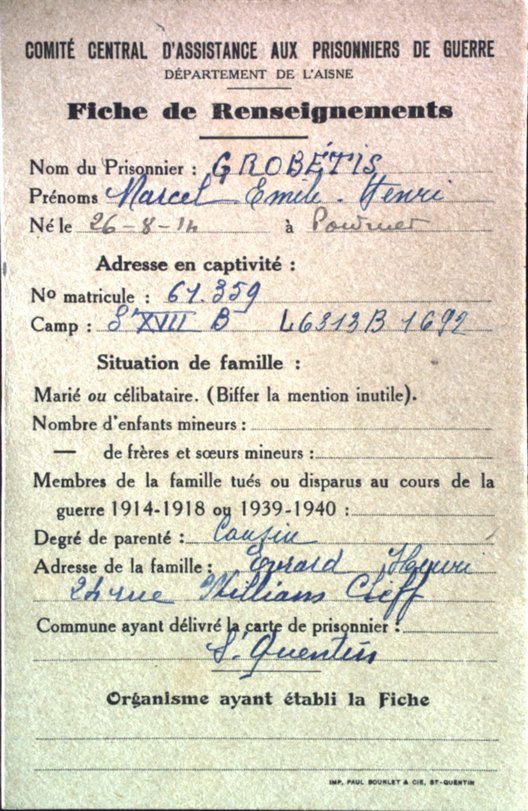 COMITÉ CENTRAL D'ASSISTANCE AUX PRISONNIERS DE GUERRE
DÉPARTEMENT DE L'AISNE
Fiche de Renseignements
Nom du Prisonnier : GROBÉTIS
Prénoms Marcel Emile Henri
Né le 26-8-14 à
Adresse en captivité :
No matricule : 61.359
Camp : St XVII B L6313B 1692
Situation de famille :
Marié ou célibataire. (Biffer la mention inutile).
Nombre d'enfants mineurs :
— de frères et sœurs mineurs :
Membres de la famille tués ou disparus au cours de la
guerre 1914-1918 ou 1939-1940 :
Degré de parenté : Cousin
Adresse de la famille : Evrard Henri
24 rue Willians Cleff
Commune ayant délivré la carte de prisonnier :
St Quentin
Organisme ayant établi la Fiche
IMP. PAUL BOURLET & CIE, ST-QUENTIN